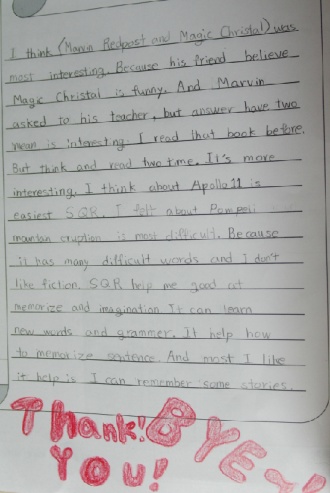 I think (Marvin Redpost and Magic Christal) was
most interesting. Because his friend believe
Magic Christal is funny. And Marvin
asked to his teacher, but answer have two
mean is interesting. I read that book before.
But think and read two time. It's more
interesting. I think about Apollo 11 is
easiest SQR. I felt about Pompeii
mountan eruption is most difficult. Because
it has many difficult words and I don't
like fiction. SQR help me good at
memorize and imagination It can learn
new words and grammer. It help how
to memorize sentence. And most I like
it help is I can remember some stories.
Thank! BYE~!
YOU!